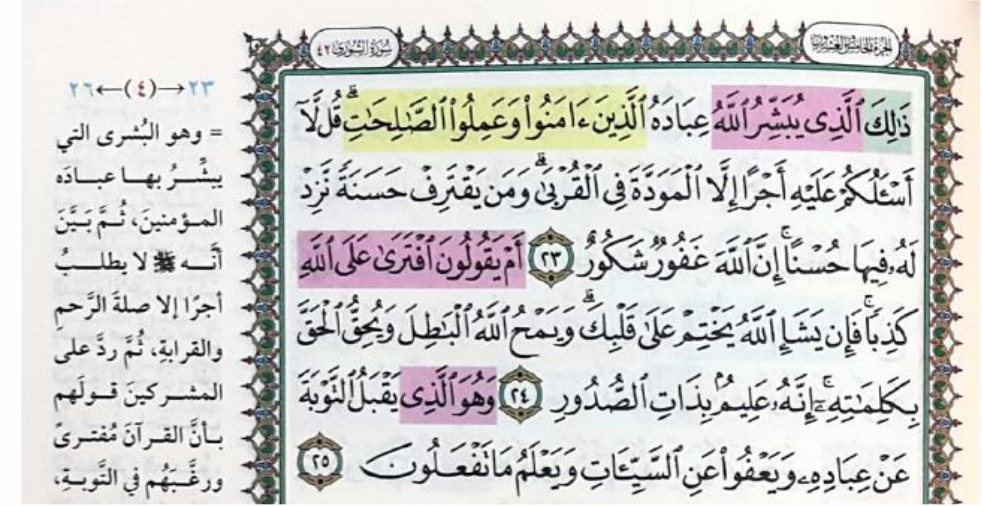 الجزء الخامس والعشرون
سُورَةُ الشُّورَىٰ ٤٢
ذَٰلِكَ ٱلَّذِى يُبَشِّرُ ٱللَّهُ عِبَادَهُ ٱلَّذِينَ ءَامَنُوا۟ وَعَمِلُوا۟ ٱلصَّـٰلِحَـٰتِ ۗ قُل لَّآ
أَسْـَٔلُكُمْ عَلَيْهِ أَجْرًا إِلَّا ٱلْمَوَدَّةَ فِى ٱلْقُرْبَىٰ ۗ وَمَن يَقْتَرِفْ حَسَنَةً نَّزِدْ
لَهُۥ فِيهَا حُسْنًا ۚ إِنَّ ٱللَّهَ غَفُورٌ شَكُورٌ ٢٣ أَمْ يَقُولُونَ ٱفْتَرَىٰ عَلَى ٱللَّهِ
كَذِبًا ۖ فَإِن يَشَإِ ٱللَّهُ يَخْتِمْ عَلَىٰ قَلْبِكَ ۗ وَيَمْحُ ٱللَّهُ ٱلْبَـٰطِلَ وَيُحِقُّ ٱلْحَقَّ
بِكَلِمَـٰتِهِۦٓ ۚ إِنَّهُۥ عَلِيمٌۢ بِذَاتِ ٱلصُّدُورِ ٢٤ وَهُوَ ٱلَّذِى يَقْبَلُ ٱلتَّوْبَةَ
عَنْ عِبَادِهِۦ وَيَعْفُوا۟ عَنِ ٱلسَّيِّـَٔاتِ وَيَعْلَمُ مَا تَفْعَلُونَ ٢٥
٢٣→(٤)←٢٦
= وهو البُشرى التي
يبشِّرُ بها عبادَه
المؤمنينَ، ثُمَّ بَيَّنَ
أنَّه ﷺ لا يطلبُ
أجرًا إلا صلةَ الرَّحمِ
والقرابةِ، ثُمَّ ردَّ على
المشركينَ قولَهم
بأنَّ القرآنَ مُفترىً
ورغَّبَهُم في التَّوبةِ،